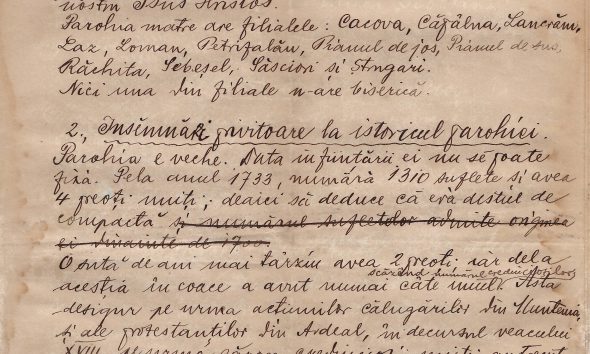 nostru Isus Hristos.
Parohia matre are filialele: Cacova, Căpâlna, Lancrăm,
Laz, Loman, Petrifalău, Pianul de jos, Pianul de sus,
Răchita, Sebeșel, Săsciori și Strugari.
Nici una din filiale n-are biserică.
2., Însemnări privitoare la istoricul parohiei.
Parohia e veche. Data înființării ei nu se poate
fixă. Pela anul 1733, numără 1310 suflete și avea
4 preoți uniți; deaici să deduce că era destul de
compactă și numărul sufletelor admite originea
ei dinainte de 1700.
O sută de ani mai târziu avea 2 preoți; iar dela
scăzând numărul credincioșilor
aceștia în coace a avut numai câte unul. Asta
desigur pe urma acțiunilor călugărilor din Muntenia,
și ale protestanților din Ardeal, în decursul veacului
XVIII